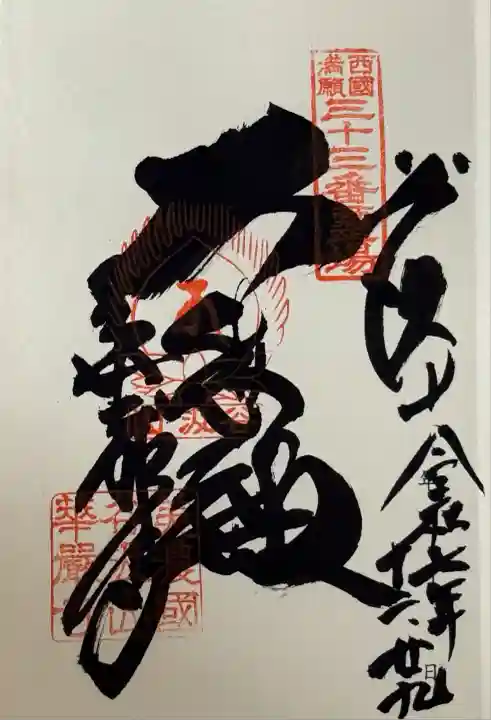 西國
満願
三十三番霊場
谷汲山
令和七年
十二・廿九日
大悲殿
美濃國
谷汲山
華嚴寺